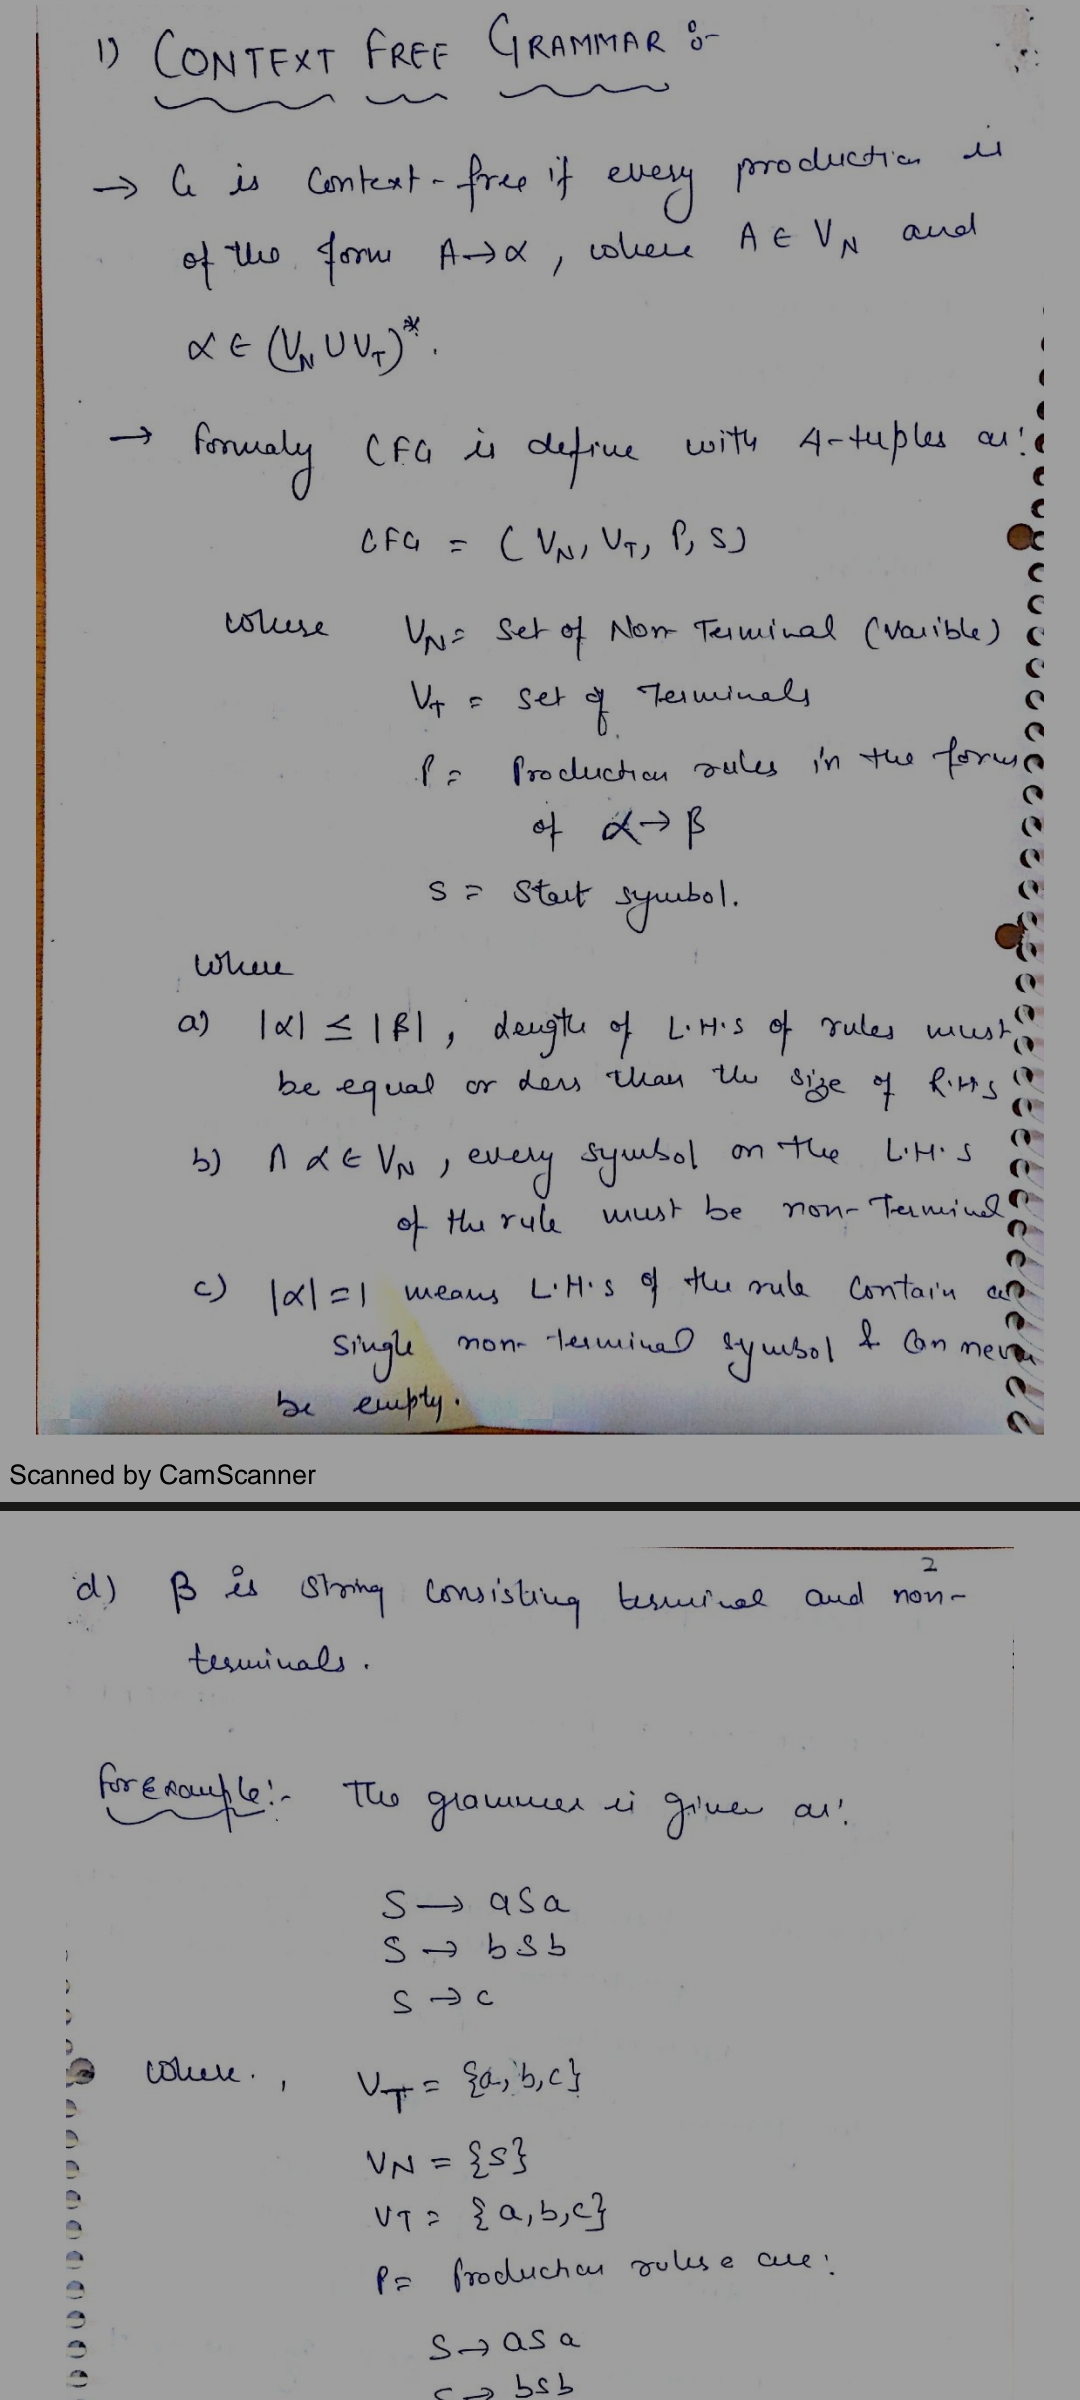 1) CONTEXT FREE GRAMMAR :-
→ G is Context-free if every production is
of the form A→α, where A ∈ VN and
α ∈ (VN ∪ VT)*.
→ formaly CFG is define with 4-tuples as:
CFG = (VN, VT, P, S)
where VN = Set of Non Terminal (Varible)
VT = set of Terminals
P = Production rules in the form
of α→β
S = Start symbol.
Where
a) |α| ≤ |β|, Length of L.H.S of rules must
be equal or Less than the size of R.H.S
b) ∧ α ∈ VN, every symbol on the L.H.S
of the rule must be non-Terminal
c) |α|=1 means L.H.S of the rule Contain a
Single non-terminal symbol & Can never
be empty.
Scanned by CamScanner
2
d) β is string Consisting terminal and non-
terminals.
for Example:- The grammer is given as:
S → aSa
S → bSb
S → c
where, VT = {a, b, c}
VN = {S}
VT = {a, b, c}
P = Production rules are:
S → aSa
S → bSb